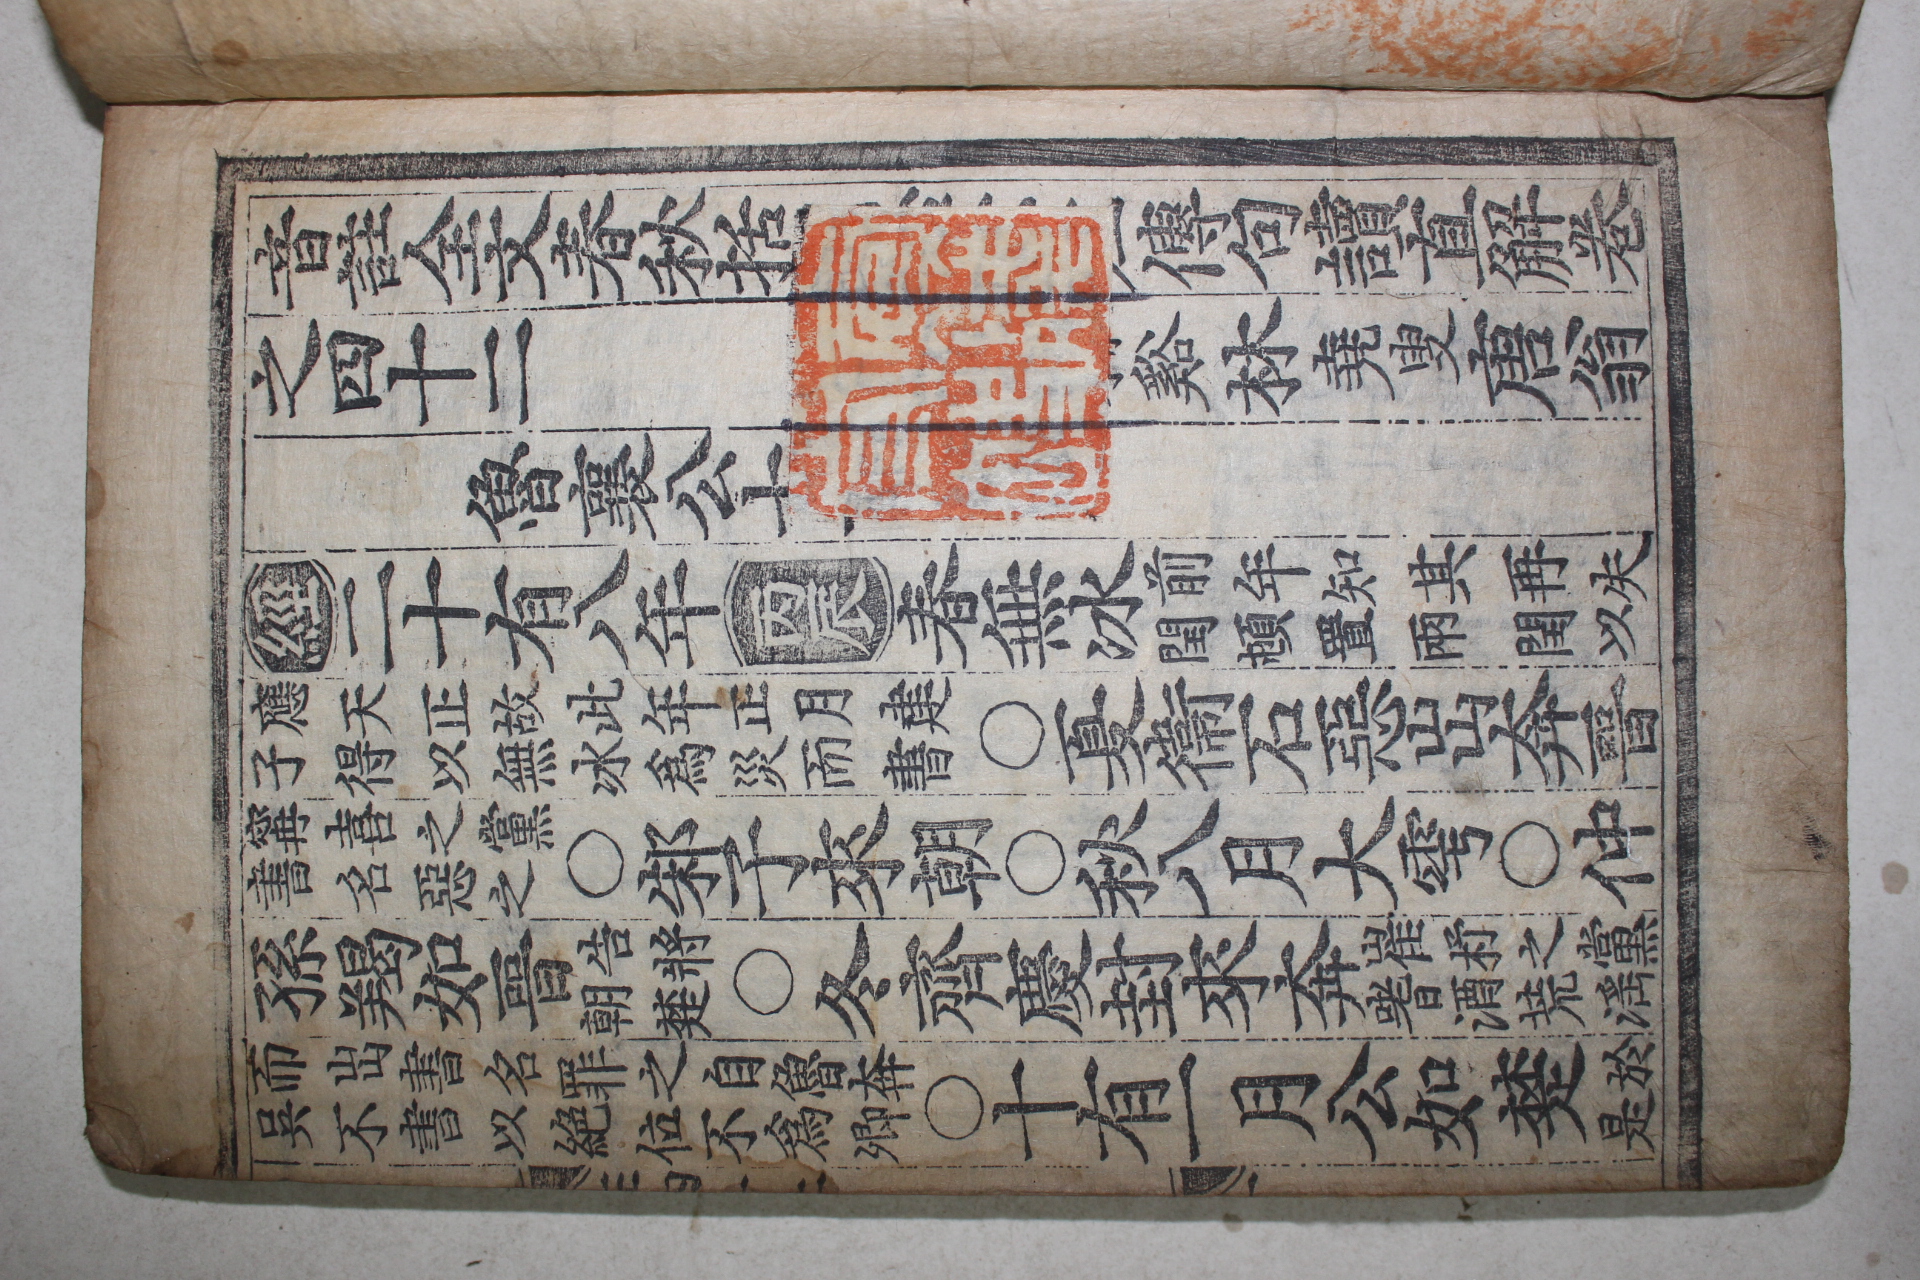 音註全文春秋括傳句讀直解卷
之四十二 谿林堯叟唐翁
魯襄公十
經二十有八年丙辰春無冰前年知其再失閏頓置兩閏以
應天正故此年正月建子得以無冰爲災而書○夏衞石惡出奔晉
甯喜之黨書名惡之○邾子來朝○秋八月大雩○仲
孫羯如晉告將朝楚○冬齊慶封來奔崔杼之黨耆酒荒淫
而出書名罪之自魯奔吳不書以絕位不爲卿○十有一月公如楚於是